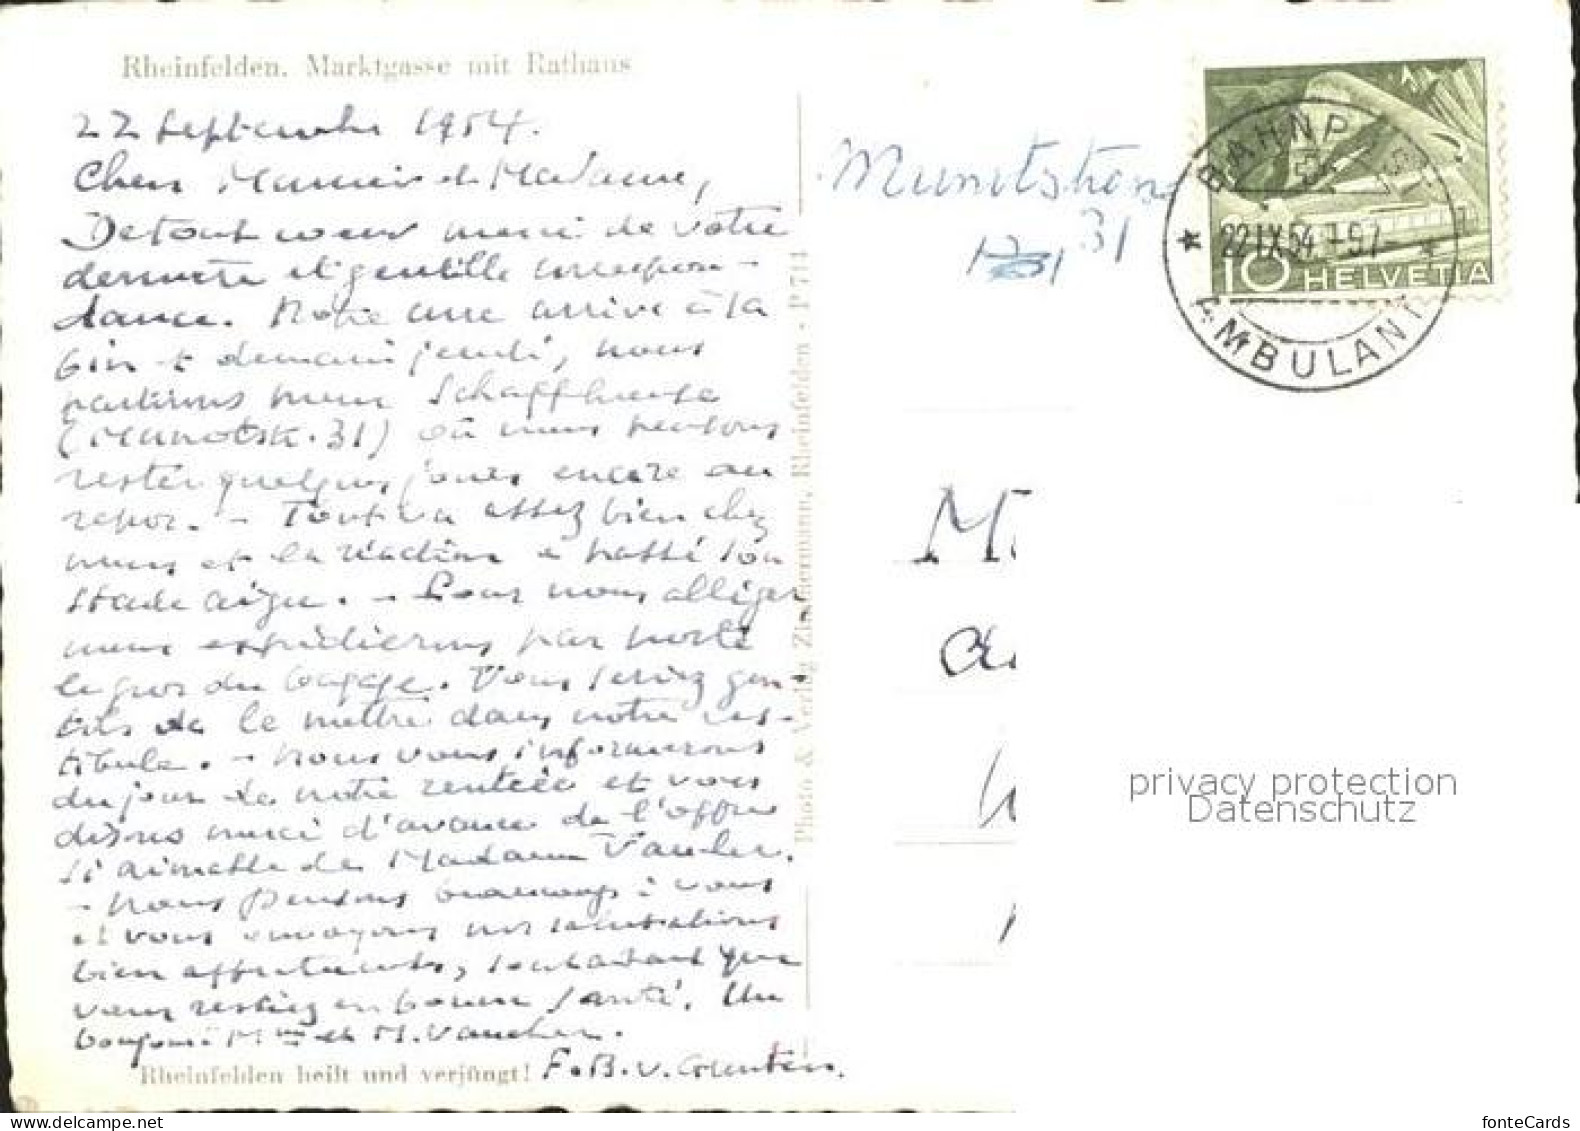 Rheinfelden. Marktgasse mit Rathaus
22 Septembre 1954.
Cher Monsieur et Madame,
De tout coeur merci de votre
dernière et gentille correspon-
dance. Notre cure arrive à la
fin et demain jeudi, nous
partirons pour Schaffhouse
(Munotstr. 31) où nous pensons
rester quelques jours encore au
repos. - Tout va assez bien chez
nous et la réaction a passé son
stade aigu. - Pour nous alléger
nous expédierons par poste
le gros du bagage. Vous seriez gen-
tils de le mettre dans notre ves-
tibule. - Nous vous informerons
du jour de notre rentrée et vous
disons merci d'avance de l'offre
si aimable de Madame Vaucher.
- Nous pensons beaucoup à vous
et vous envoyons nos salutations
bien affectueuses, souhaitant que
vous restiez en bonne santé. Un
bonjour à Mme et M. Vaucher.
F. B. v. Gunten.
Rheinfelden heilt und verjüngt!
Photo & Verlag Zimmermann, Rheinfelden - P 714
Munotstrasse
31
BAHNPOST
22.IX.54.-97
AMBULANT
10 HELVETIA
M.
privacy protection
Datenschutz
fonteCards